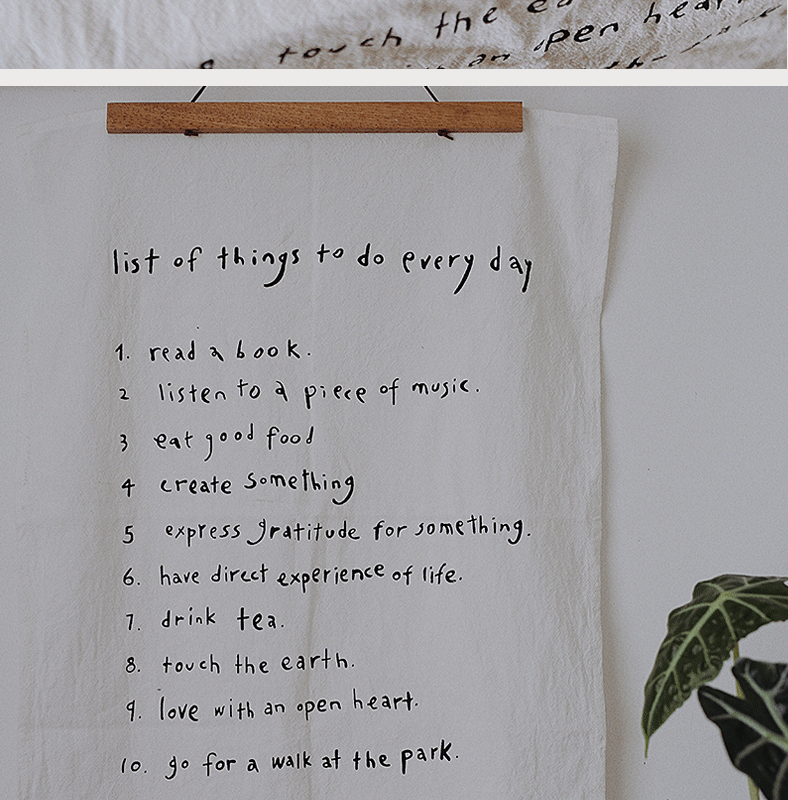 touch the ea
an open hear
the
list of things to do every day
1. read a book.
2 listen to a piece of music.
3 eat good food
4 create something
5 express gratitude for something.
6. have direct experience of life.
7. drink tea.
8. touch the earth.
9. love with an open heart.
10. go for a walk at the park.